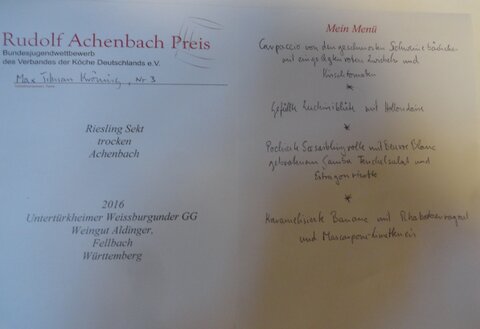 Rudolf Achenbach Preis
Bundesjugendwettbewerb
des Verbandes der Köche Deutschlands e.V.
Max Tilman, Nr 3
Riesling Sekt
trocken
Achenbach
2016
Untertürkheimer Weissburgunder GG
Weingut Aldinger,
Fellbach
Württemberg
Mein Menü
Carpaccio von den geschmorten Schweinebäckchen
mit eingelegten roten Zwiebeln und
Kirschtomaten
*
Gefüllte Zucchiniblüte mit Hollandaise
*
Pochierte Seesaiblingrolle mit Beurre Blanc
gebratenem Gamba Fenchelsalat und
Estragonrisotto
*
Karamellisierte Banane mit Rhabarberragout
und Mascarpone